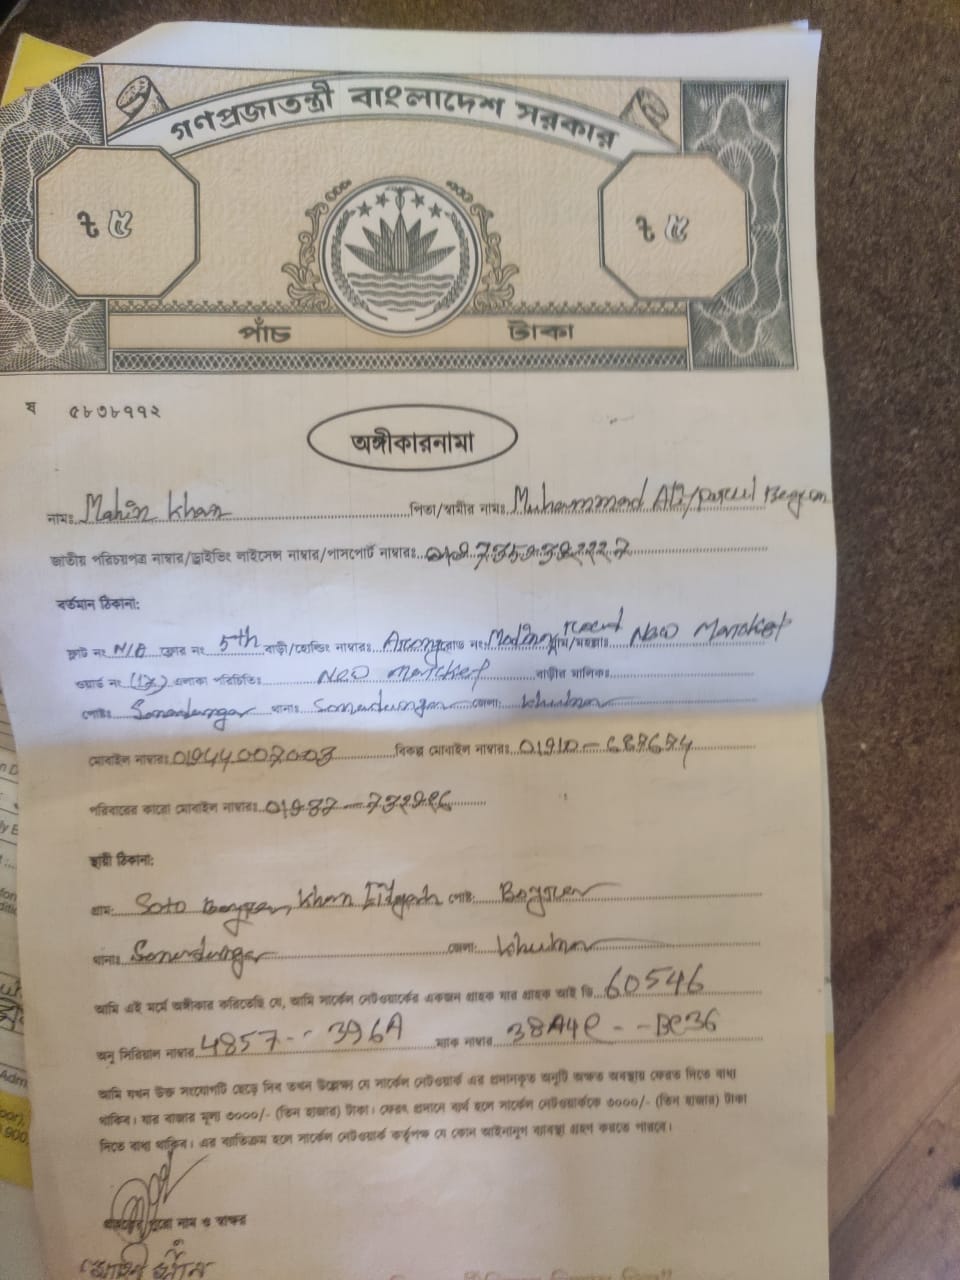 গণপ্রজাতন্ত্রী বাংলাদেশ সরকার
৳ ৫ ৳ ৫
পাঁচ টাকা
ষ ৫৮৩৮৭৭২
অঙ্গীকারনামা
নামঃ Mahin Khan পিতা/স্বামীর নামঃ Muhammad Ali/Parul Begum
জাতীয় পরিচয়পত্র নাম্বার/ড্রাইভিং লাইসেন্স নাম্বার/পাসপোর্ট নাম্বারঃ
বর্তমান ঠিকানা:
ফ্লাট নং N/B ফ্লোর নং 5th বাড়ী/হোল্ডিং নাম্বারঃ রোড নং গ্রাম/মহল্লাঃ New Market
ওয়ার্ড নং (17) এলাকা পরিচিতিঃ New Market বাড়ীর মালিকঃ
পোষ্টঃ Sonadangar থানাঃ Sonadangar জেলা: Khulna
মোবাইল নাম্বারঃ 01944007003 বিকল্প মোবাইল নাম্বারঃ
পরিবারের কারো মোবাইল নাম্বারঃ
স্থায়ী ঠিকানা:
গ্রাম: Khan পোষ্ট:
থানাঃ Sonadangar জেলা: Khulna
আমি এই মর্মে অঙ্গীকার করিতেছি যে, আমি সার্কেল নেটওয়ার্কের একজন গ্রাহক যার গ্রাহক আই ডি 60546
অনু সিরিয়াল নাম্বার 4857-- 396A ম্যাক নাম্বার 38A4e - -BC36
আমি যখন উক্ত সংযোগটি ছেড়ে দিব তখন উল্লেক্ষ্য যে সার্কেল নেটওয়ার্ক এর প্রদানকৃত অনুটি অক্ষত অবস্থায় ফেরত দিতে বাধ্য
থাকিব। যার বাজার মূল্য ৩০০০/- (তিন হাজার) টাকা। ফেরৎ প্রদানে ব্যর্থ হলে সার্কেল নেটওয়ার্ককে ৩০০০/- (তিন হাজার) টাকা
দিতে বাধ্য থাকিব। এর ব্যতিক্রম হলে সার্কেল নেটওয়ার্ক কর্তৃপক্ষ যে কোন আইনানুগ ব্যবস্থা গ্রহণ করতে পারবে।
পুরো নাম ও স্বাক্ষর